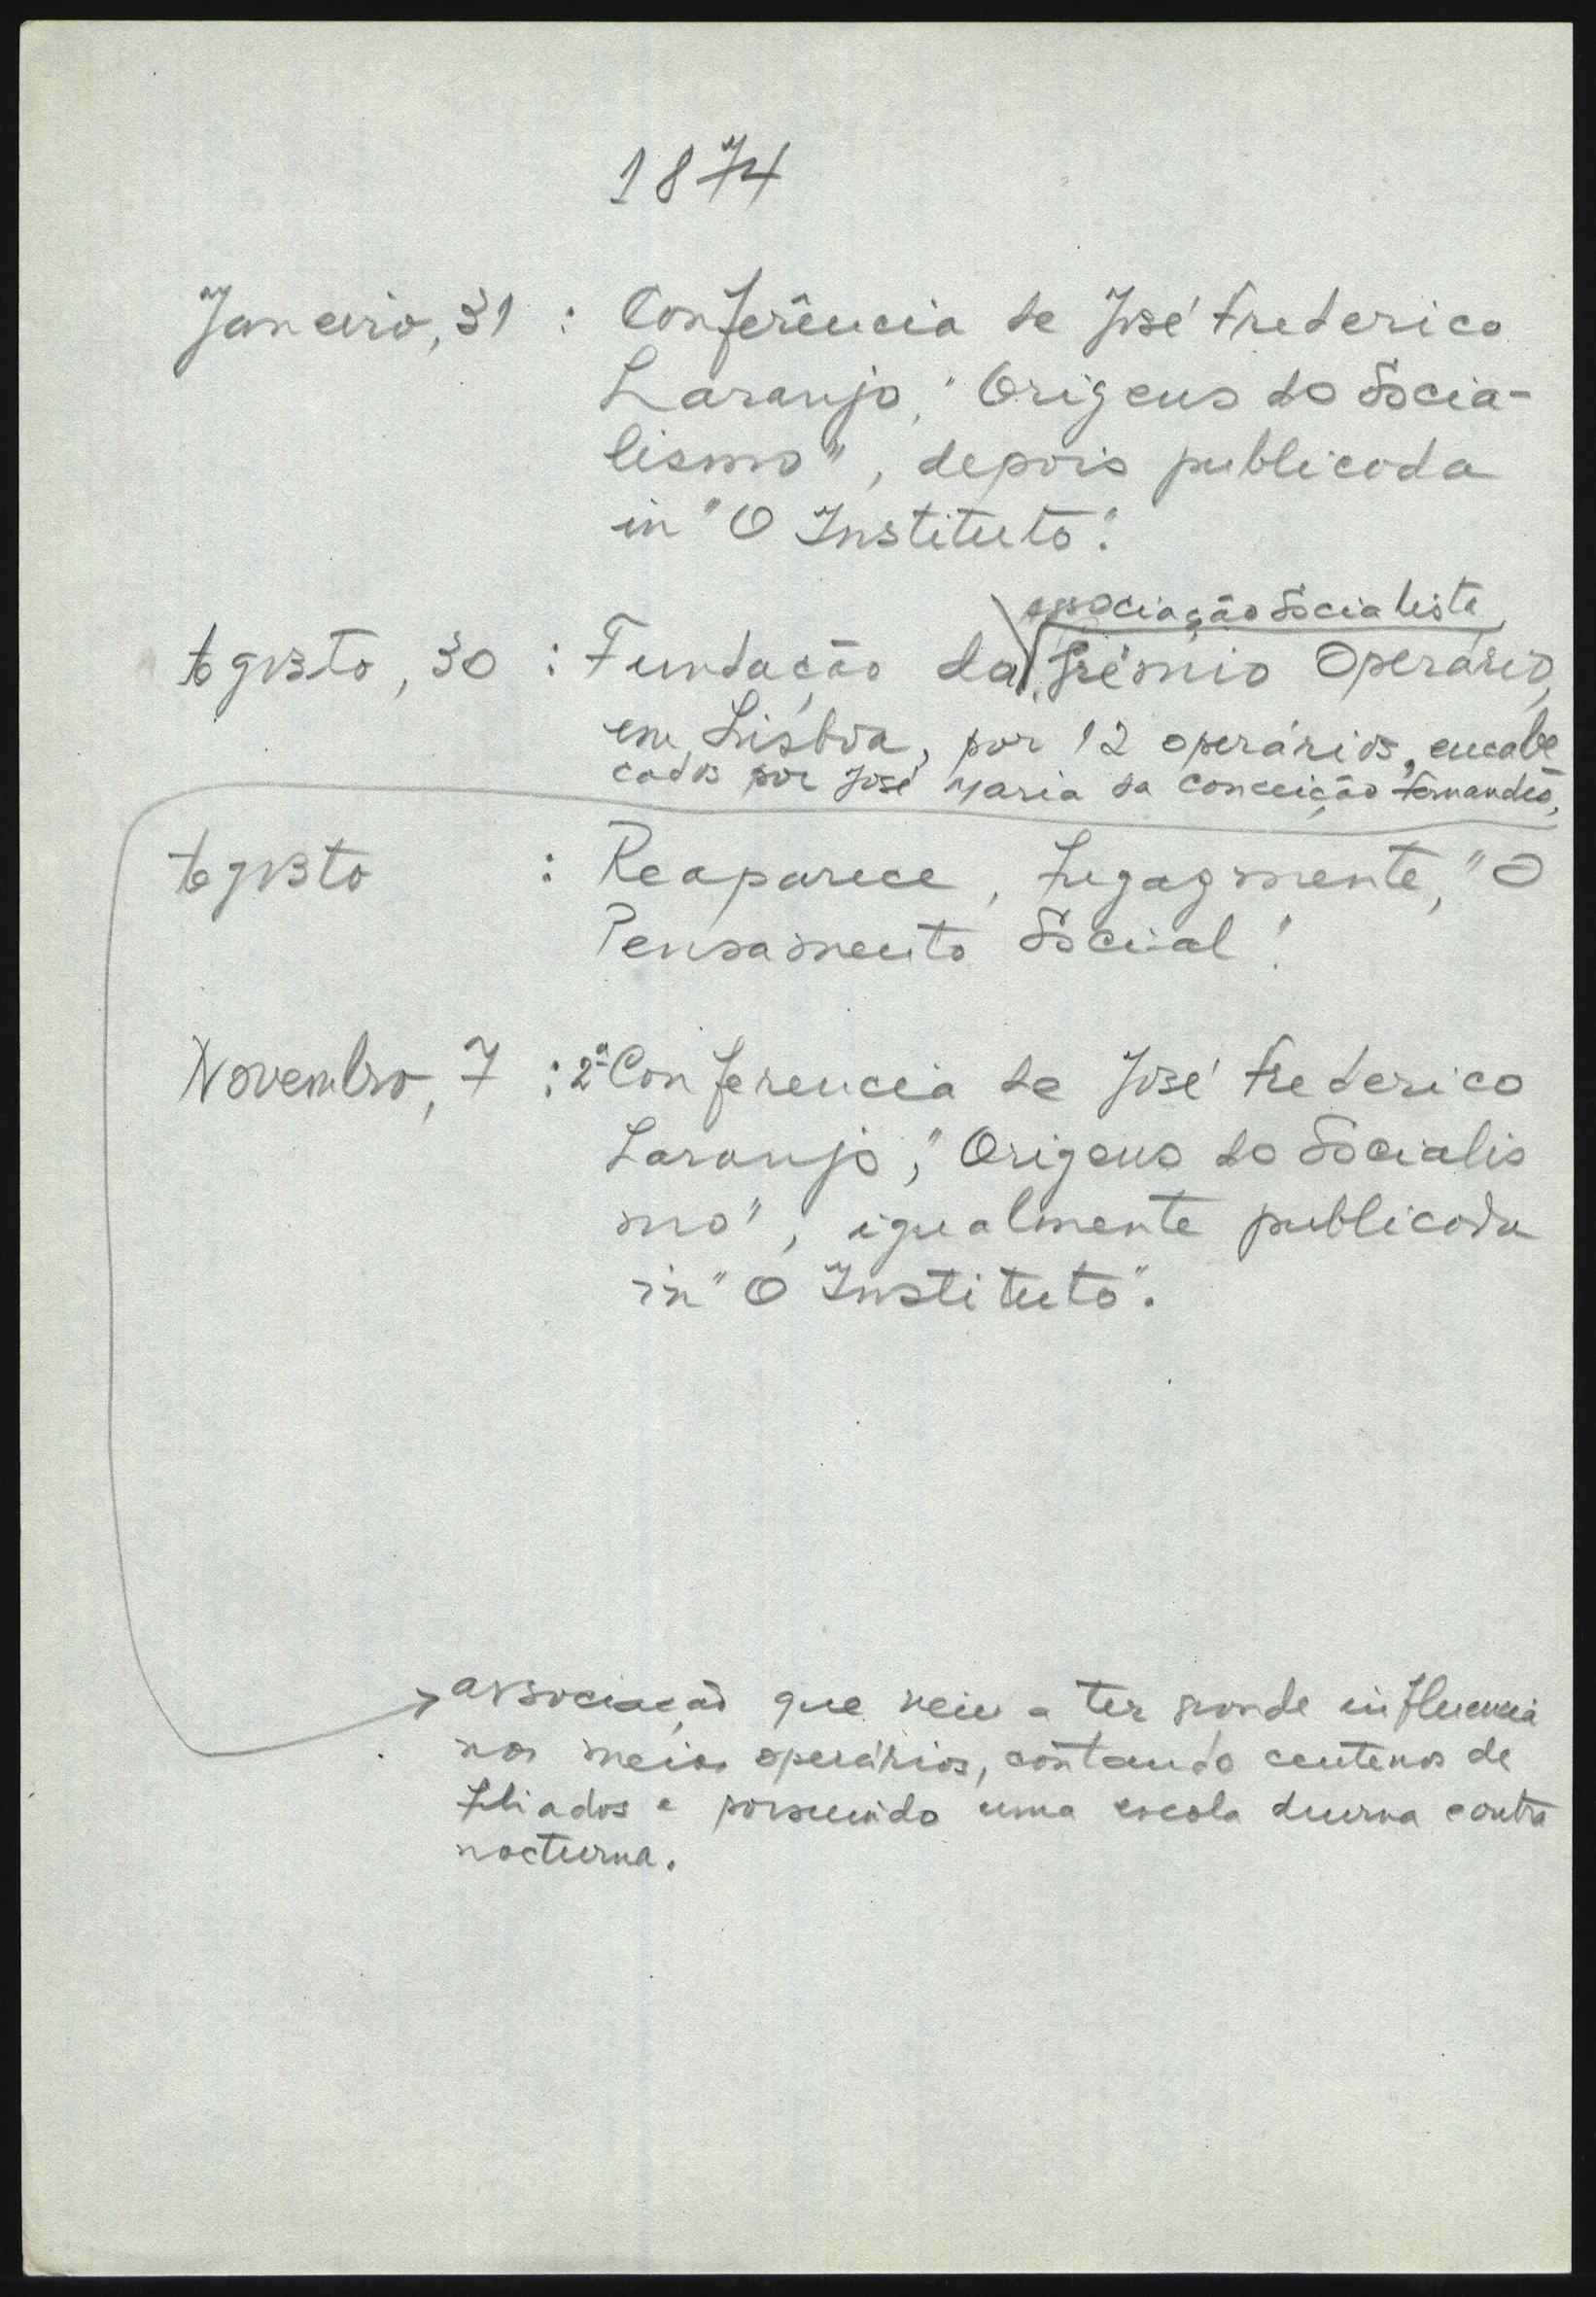 1874
Janeiro, 31 : Conferência de José Frederico
Laranjo, "Origens do Socia-
lismo", depois publicada
in "O Instituto".
associação Socialista
Agosto, 30 : Fundação da Grémio Operário,
em Lisboa, por 12 operários, encabe
çados por José Maria da Conceição Fernandes,
Agosto : Reaparece, fugazmente, "O
Pensamento Social".
Novembro, 7 : 2ª Conferencia de José Frederico
Laranjo, "Origens do Socialis
mo", igualmente publicada
in "O Instituto".
associação que veiu a ter grande influencia
nos meios operários, contando centenas de
filiados e possuindo uma escola diurna e outra
nocturna.